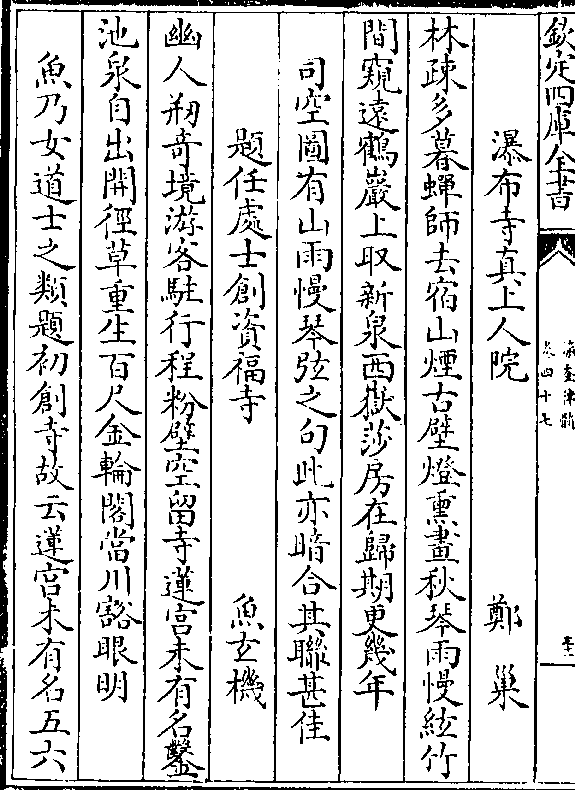 欽定四庫全書
瀛奎律髓
卷四十七
瀑布寺真上人院 鄭巢
林疎多暮蟬師去宿山煙古壁燈熏畫秋琴雨慢絃竹
間窺遠鶴巖上取新泉西嶽莎房在歸期更幾年
司空圖有山雨慢琴弦之句此亦暗合其聯甚佳
題任處士創資福寺 魚玄機
幽人剏奇境游客駐行程粉壁空留寺蓮宫未有名鑿
池泉自出開徑草重生百尺金輪閣當川豁眼明
魚乃女道士之類題初創寺故云蓮宫未有名五六